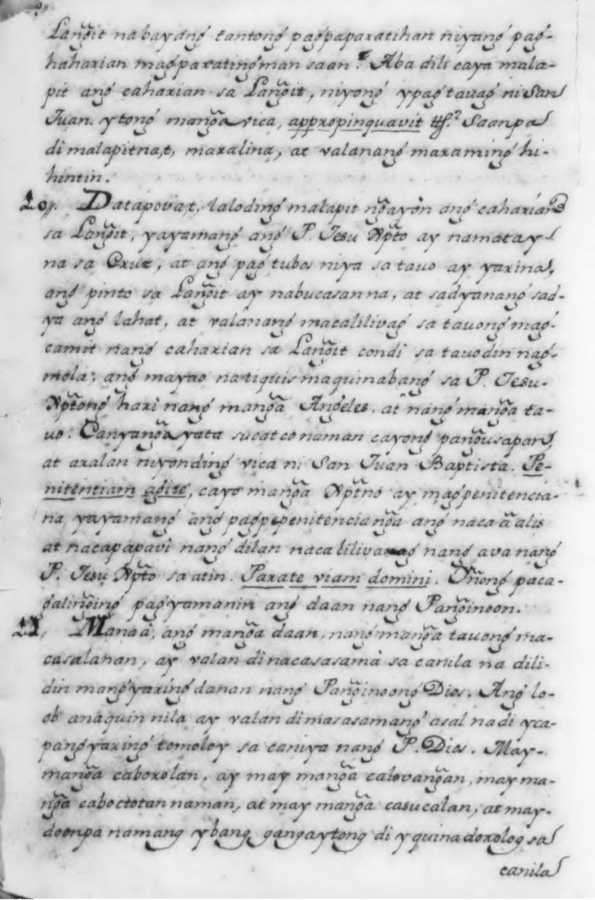 Lang̃it na bayang tantong pagpaparatihan niyang pag-
haharian magparatingman saan? Aba dili caya mala-
pit ang caharian sa Lang̃it, niyong ypagtauag ni San
Juan. ytong mang̃a vica, appropinquavit &.ª Saanpa
di malapitna,t, maralina, at valanang maraming hi-
hintin.
20. Datapoua,t, laloding malapit ng̃ayòn ang caharian
sa Lang̃it, yayamang ang P. Iesu Xp̃to ay namatay
na sa Cruz, at ang pag tubos niya sa tauo ay yarina,
ang pinto sa Lang̃it ay nabucasanna, at sadyanang sad-
ya ang lahat, at valanang macalilivag sa tauong mag-
camit nang caharian sa Lang̃it condi sa tauodin nag-
mola; ang mayao na tiquis maquinabang sa P. Iesu-
Xp̃tong hari nang mang̃a Angeles, at nang mang̃a ta-
uo: Canyang̃a yata sucat co naman cayong pang̃usapan,
at aralan niyonding vica ni San Juan Baptista. Pe-
nitentiam agite, cayo mang̃a Xp̃tno ay magpenitencia-
na yayamang ang pagpepenitenciang̃a ang naca aalis
at nacapapavi nang dilan nacalilivag nang ava nang
P. Iesu Xp̃to sa atin. Parate viam domini. Oñong paca-
galing̃ing pagyamanin ang daan nang Pang̃inoon.
21. Manaa, ang mang̃a daan, nang mang̃a tauong ma-
casalanan, ay valan di nacasasamà sa canila na dili-
din mangyaring danan nang Pang̃inoong Dios. Ang lo-
ob anaquin nila ay valan di masasamang asal na di yca-
pangyaring tomoloy sa caniya nang P. Dios. May-
mang̃a caborolan, ay may mang̃a calovang̃an, may ma-
ng̃a caboctotan naman, at may mang̃a casucalan, at may-
doonpa namang ybang gangaytong di yquinadorolog sa
canila